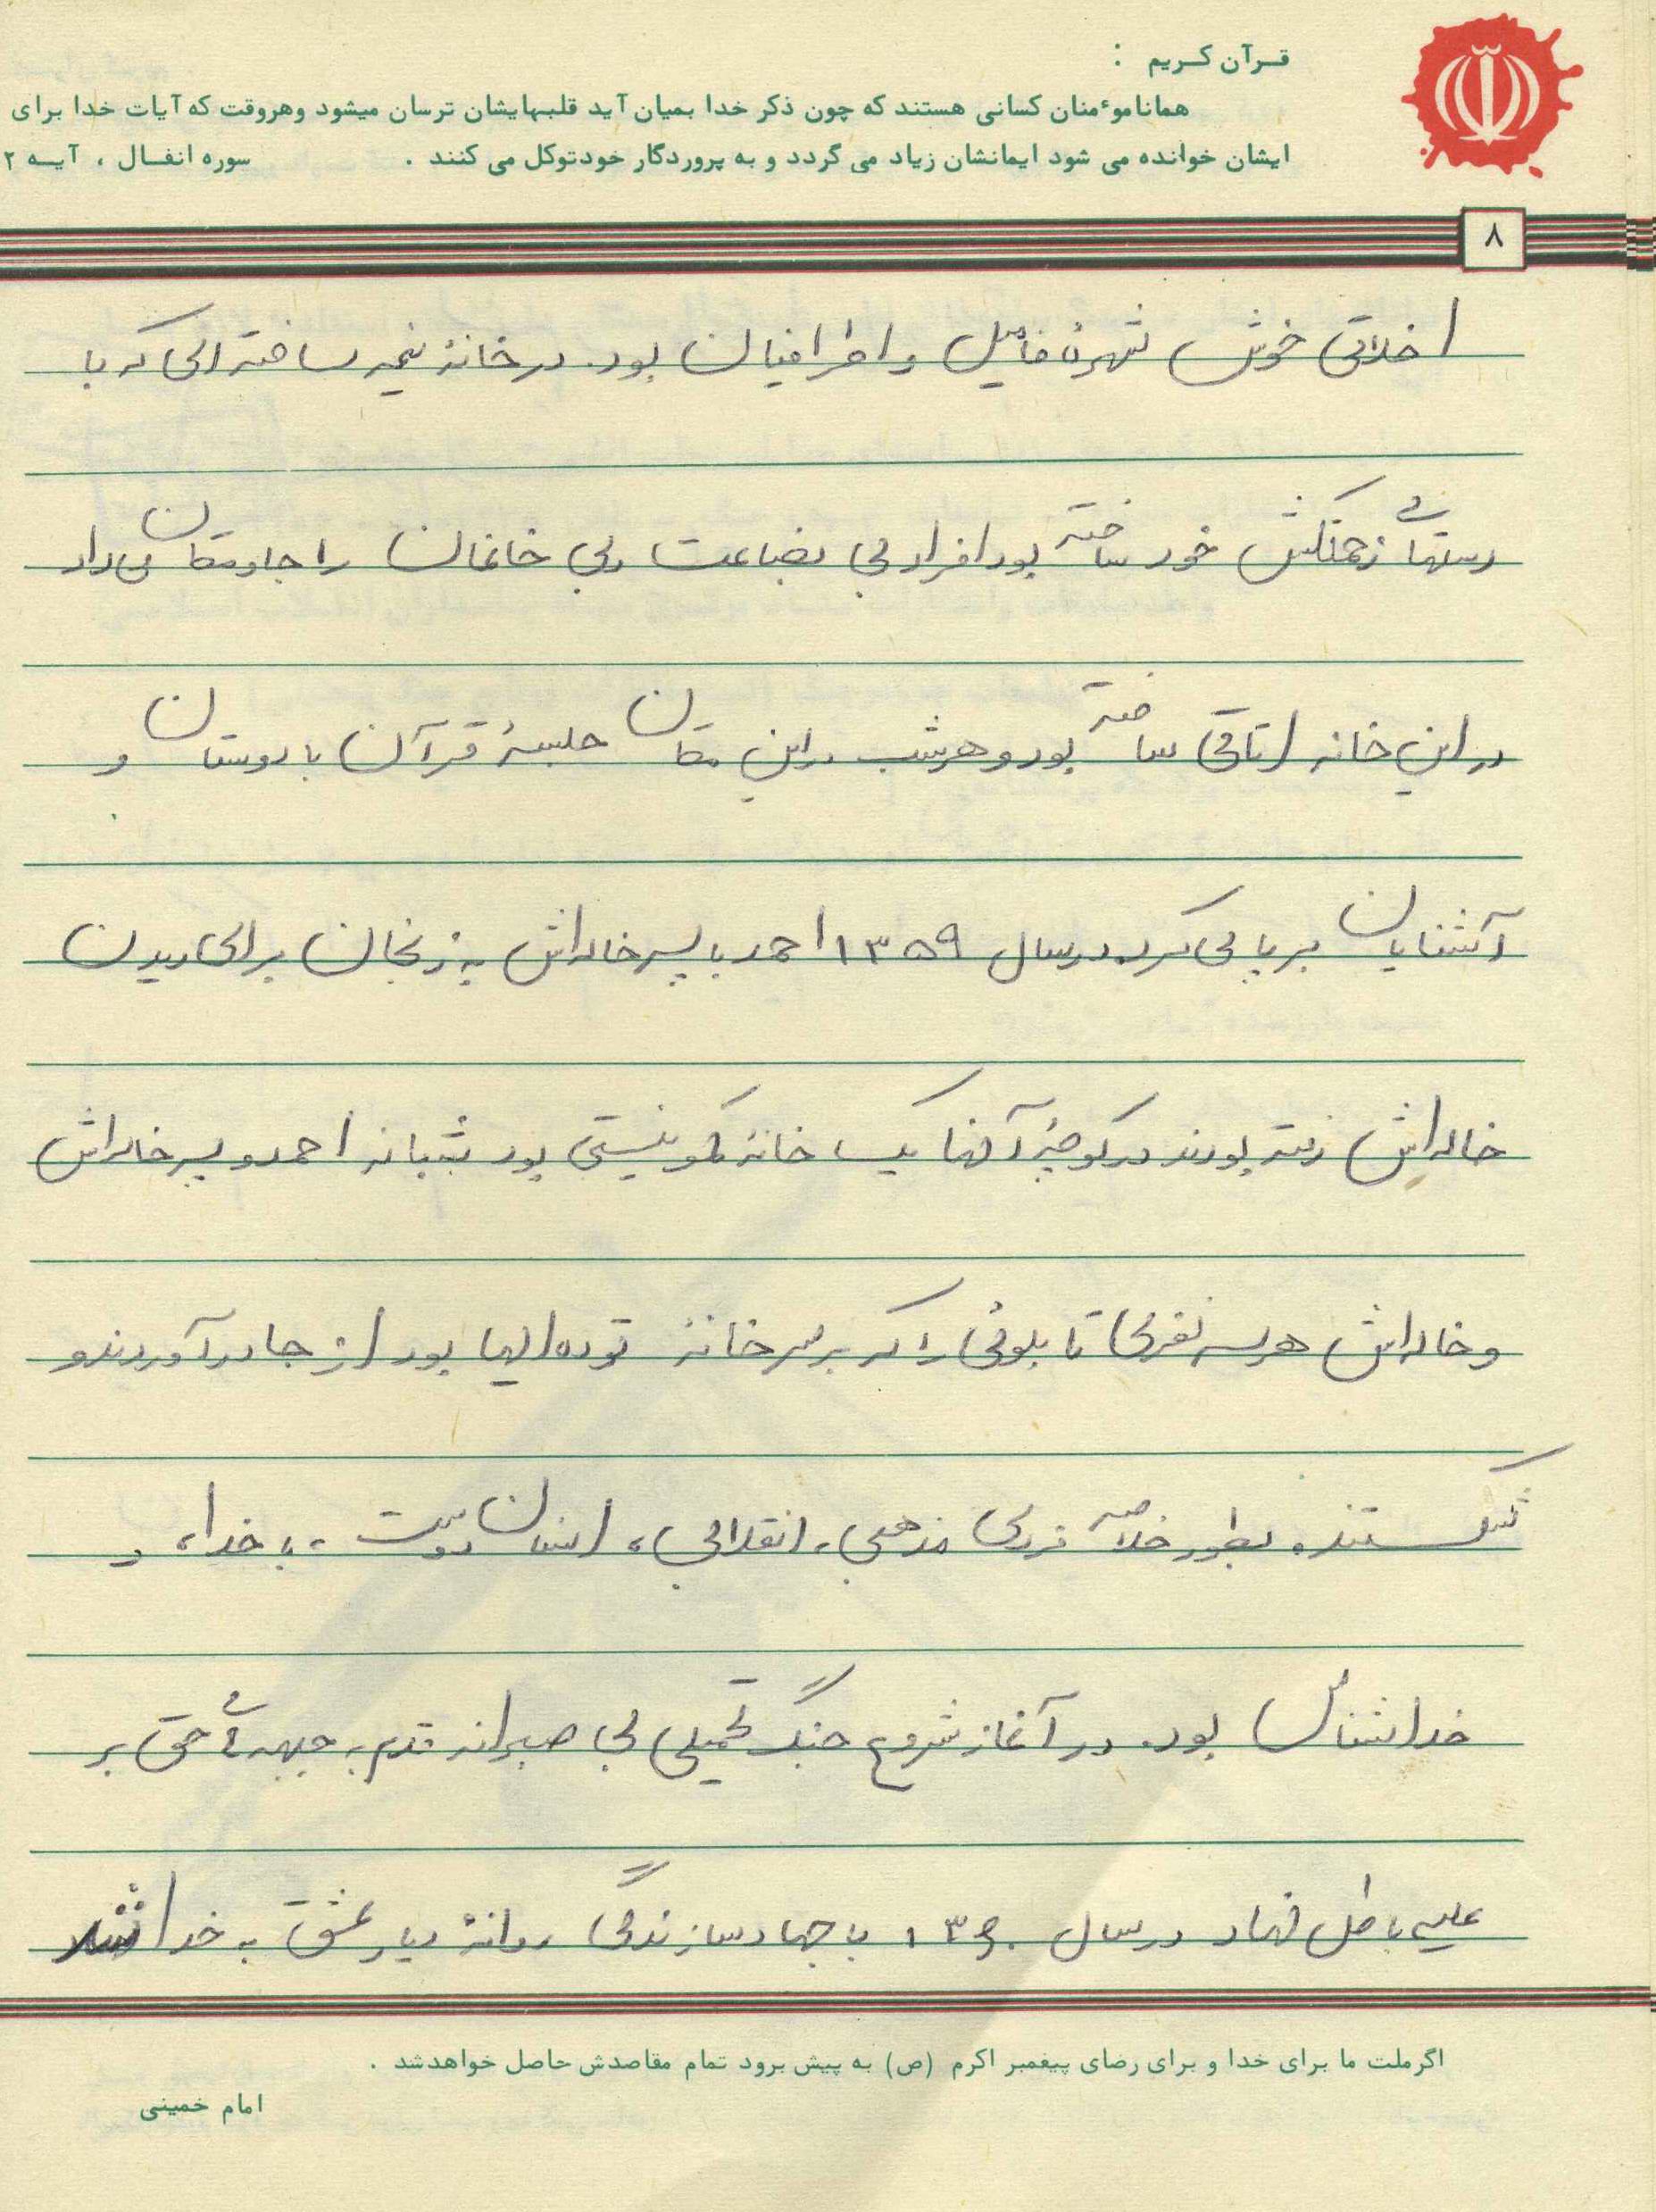 قرآن کریم :
همانا موٴمنان کسانی هستند که چون ذکر خدا بمیان آید قلبهایشان ترسان میشود وهروقت که آیات خدا برای
ایشان خوانده می شود ایمانشان زیاد می گردد و به پروردگار خودتوکل می کنند . سوره انفال ، آیه ۲
۸
اخلاق خوش شهرهٔ فامیل و اطرافیان بود. در خانهٔ نیمه ساخته‌ای که با
دستهای زحمتکش خود ساخته بود افراد بی بضاعت و بی خانمان را جا و مکان می داد
در این خانه اتاقی ساخته بود و هر شب در این مکان جلسهٔ قرآن با دوستان و
آشنایان برپا می کرد. در سال ۱۳۵۹ احمد با پسر خاله‌اش به زنجان برای دیدن
خاله‌اش رفته بودند در کوچهٔ آنها یک خانهٔ کمونیستی بود شبانه احمد و پسر خاله‌اش
و خاله‌اش هر سه نفری تابلوئی را که بر سر خانهٔ توده‌ایها بود از جا درآوردند و
شکستند. بطور خلاصه فردی مذهبی، انقلابی، انسان دوست، با خدا، و
خداشناس بود. در آغاز شروع جنگ تحمیلی بی صبرانه قدم به جبهه‌ی حق بر
علیه باطل نهاد در سال ۱۳۶۰ با جهاد سازندگی روانهٔ دیار عشق به خدا شد
اگرملت ما برای خدا و برای رضای پیغمبر اکرم (ص) به پیش برود تمام مقاصدش حاصل خواهدشد .
امام خمینی